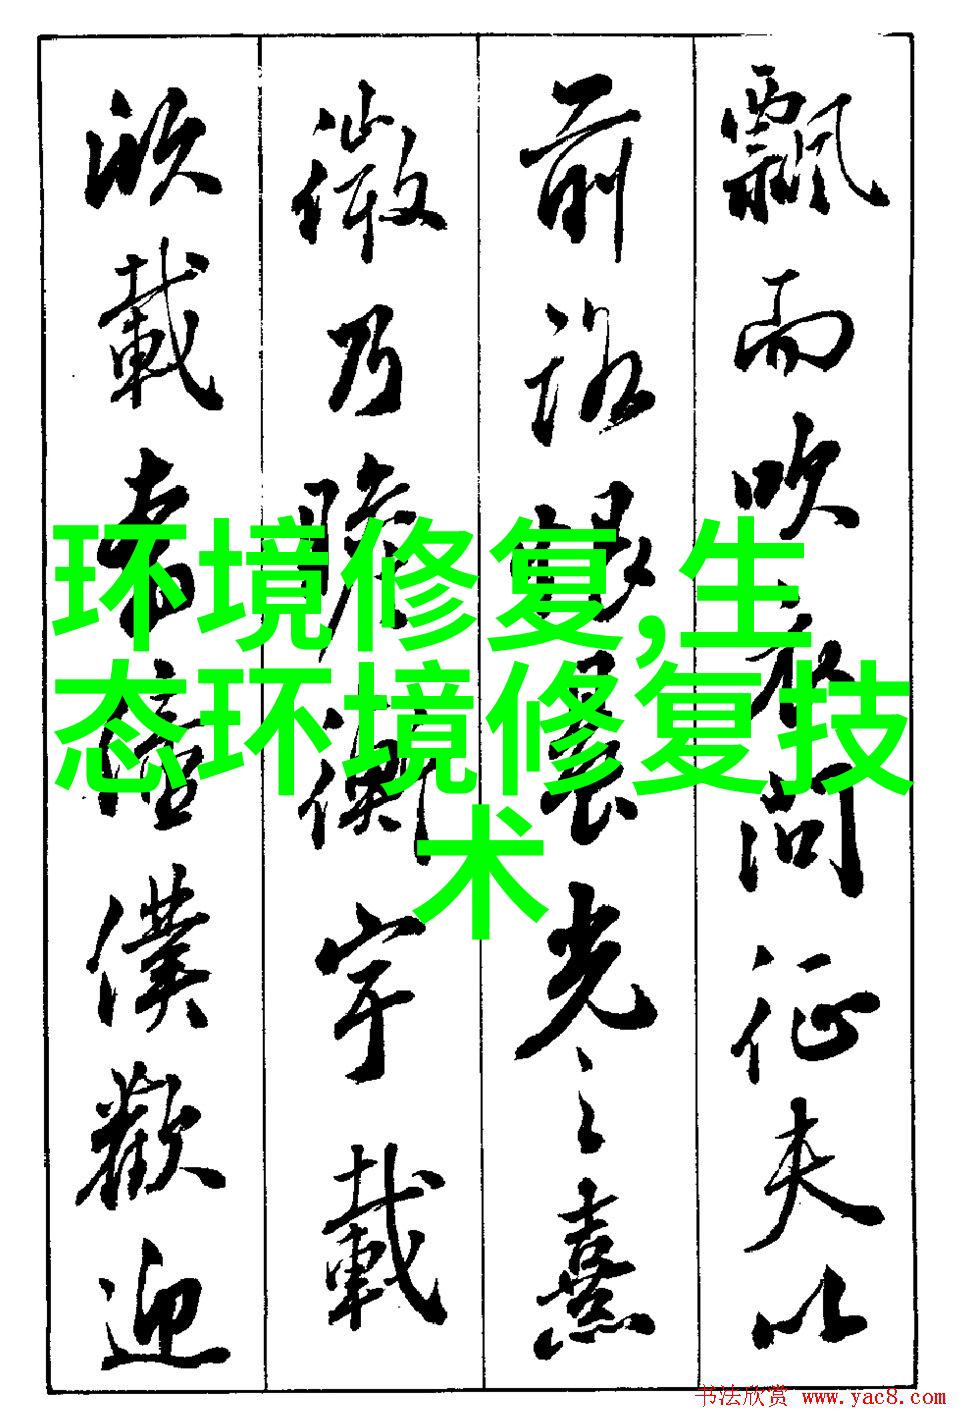 飄而吹衣問征夫以
前路恨晨光之熹
微乃瞻衡宇載
欣載奔僮僕歡迎
环境修复,生
态环境修复技
术
书法欣赏 www.yac8.com